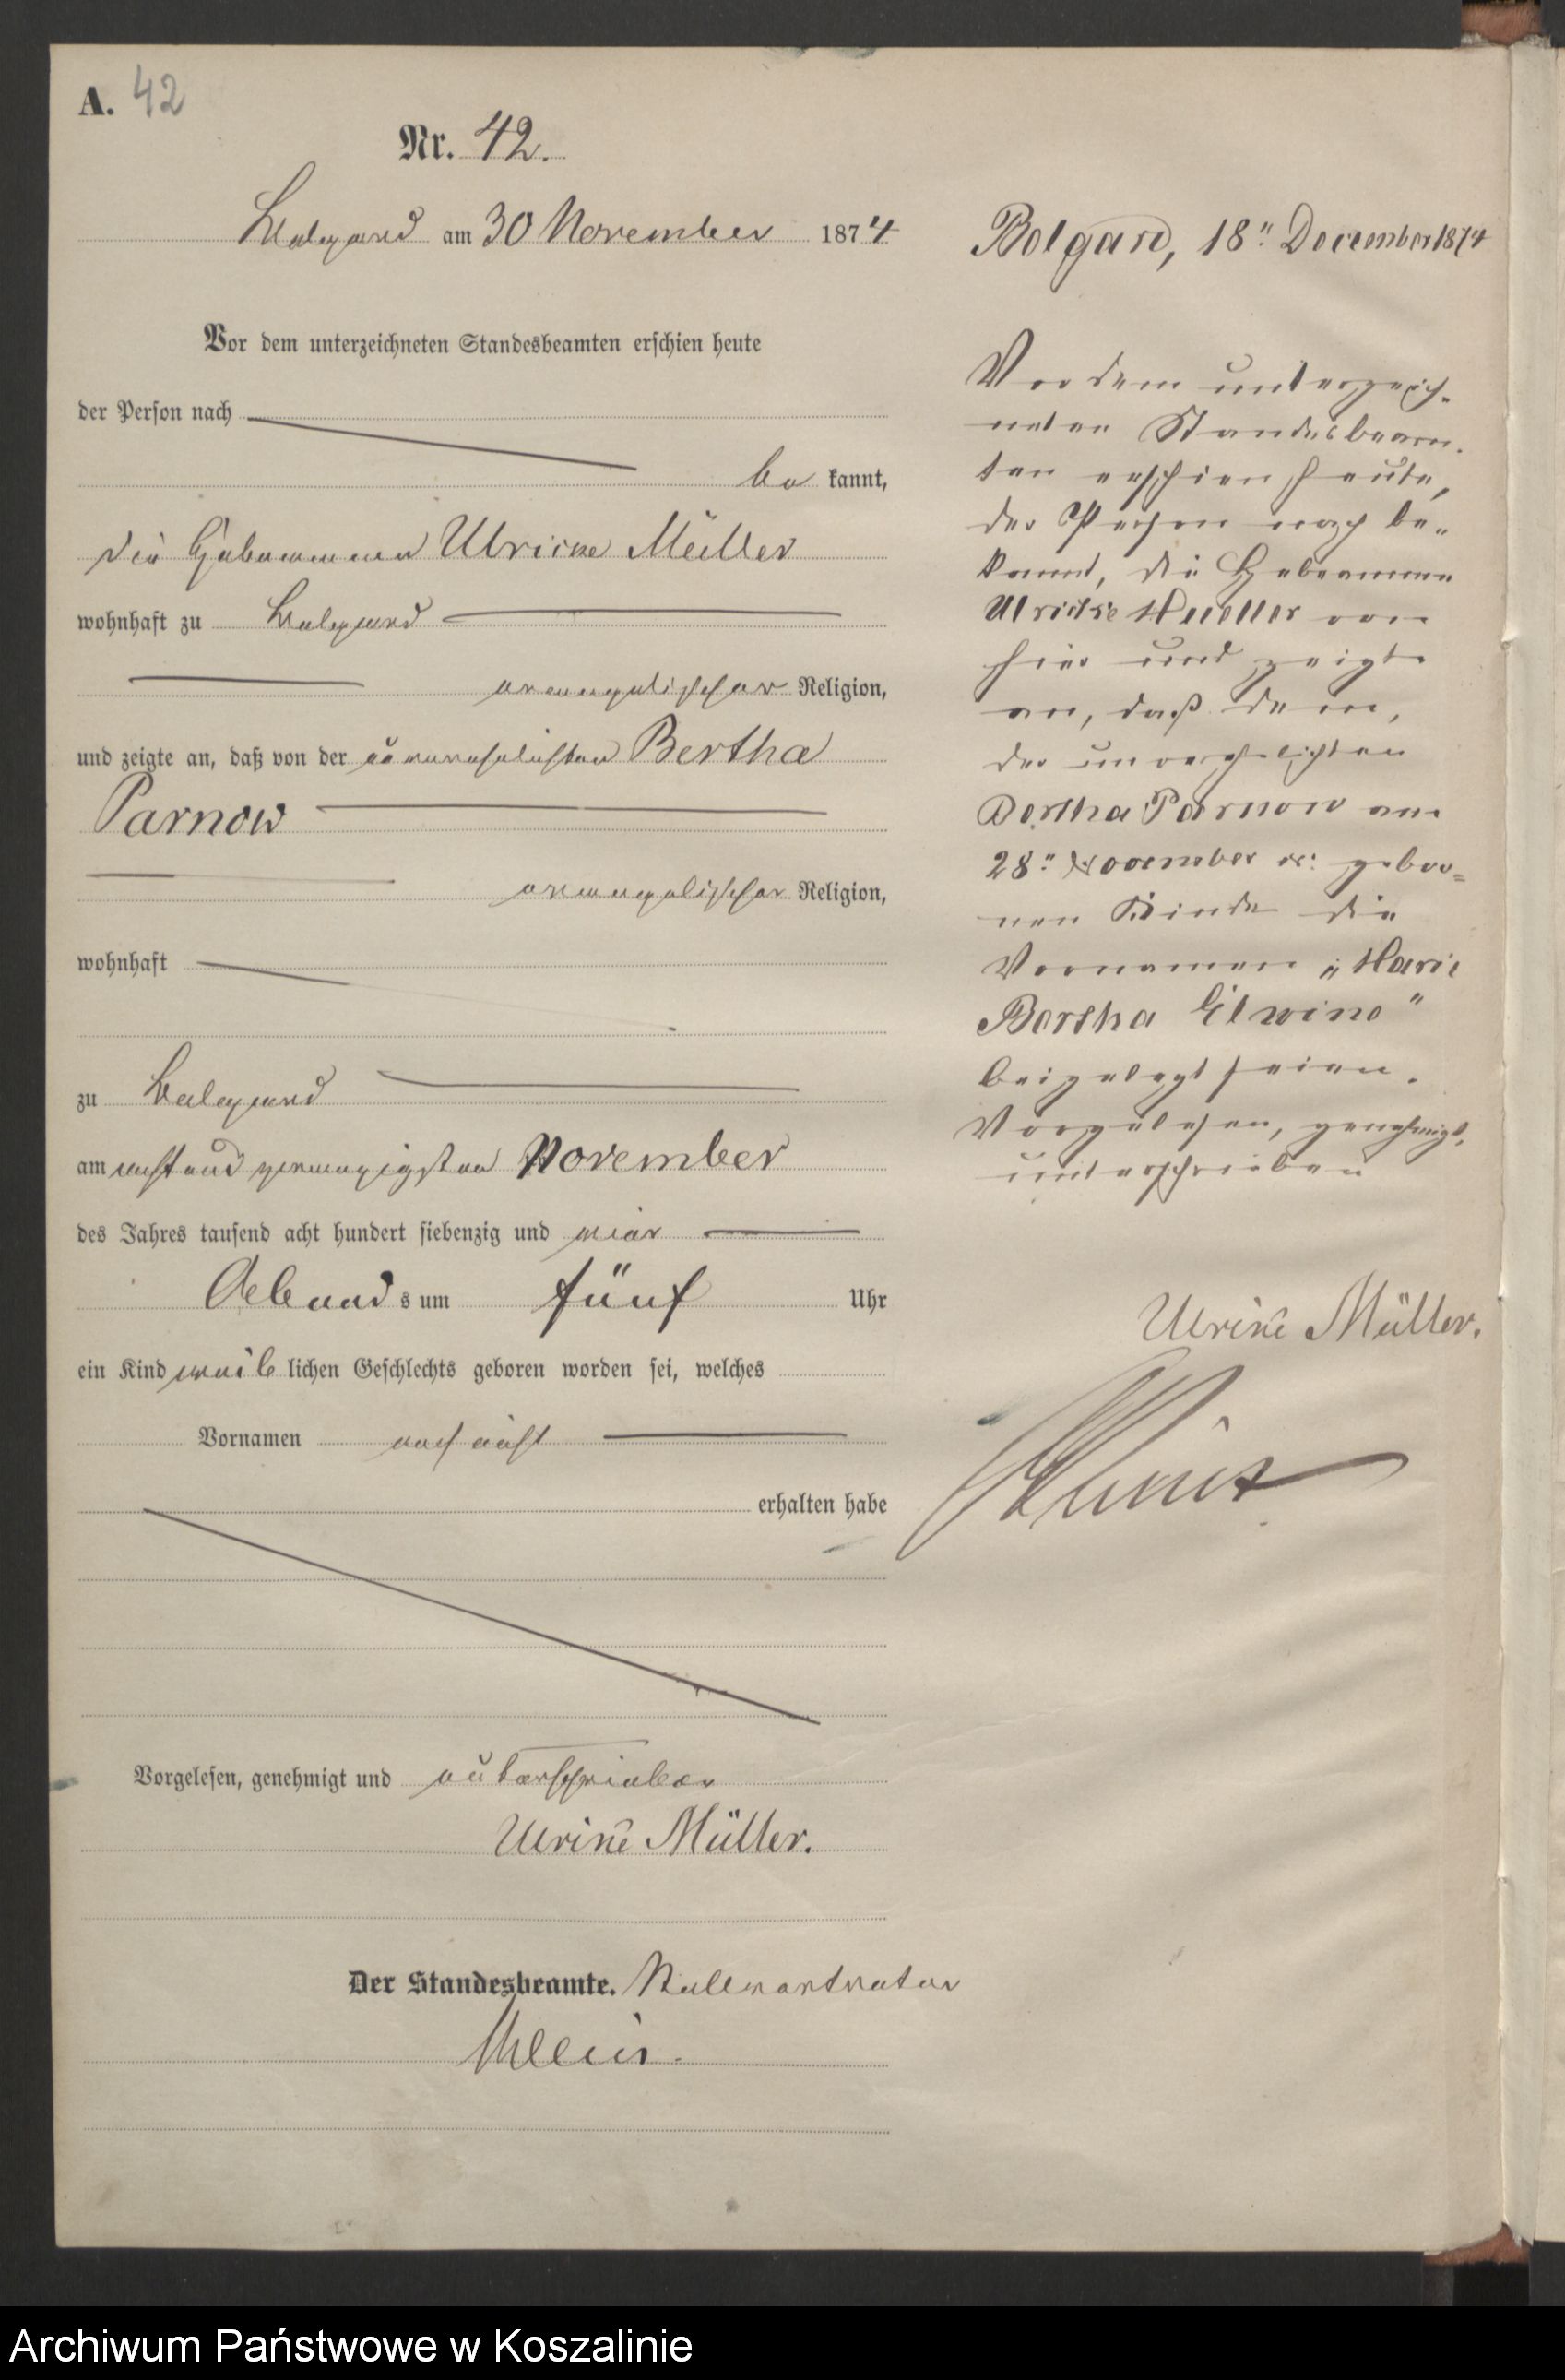 A. 42
Nr. 42.
Belgard am 30 November 1874
Vor dem unterzeichneten Standesbeamten erschien heute
der Person nach
be kannt,
die Hebamme Ulricke Müller
wohnhaft zu Belgard
evangelischer Religion,
und zeigte an, daß von der unverehelichten Bertha
Parnow
evangelischer Religion,
wohnhaft
zu Belgard
am acht und zwanzigsten November
des Jahres tausend acht hundert siebenzig und vier
Abends um fünf Uhr
ein Kind weib lichen Geschlechts geboren worden sei, welches
Vornamen noch nicht
erhalten habe
Vorgelesen, genehmigt und unterschrieben
Ulrike Müller.
Der Standesbeamte.
Klein.
Belgard, 18" December 1874
Vor dem unterzeich-
neten Standesbeam-
ten erschien heute,
der Person nach be-
kannt, die Hebamme
Ulricke Mueller von
hier und zeigte
an, daß dem,
der unverehelichten
Bertha Parnow am
28" November cr. gebor-
nen Kinde die
Vornamen "Marie
Bertha Elwine"
beigelegt seien.
Vorgelesen, genehmigt,
unterschrieben
Ulrike Müller.
Klein
Archiwum Państwowe w Koszalinie